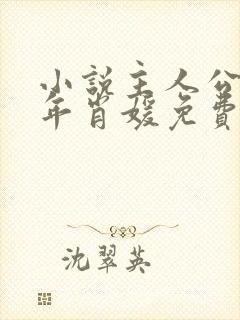 小说主人公
年肖媛免费
沈翠英